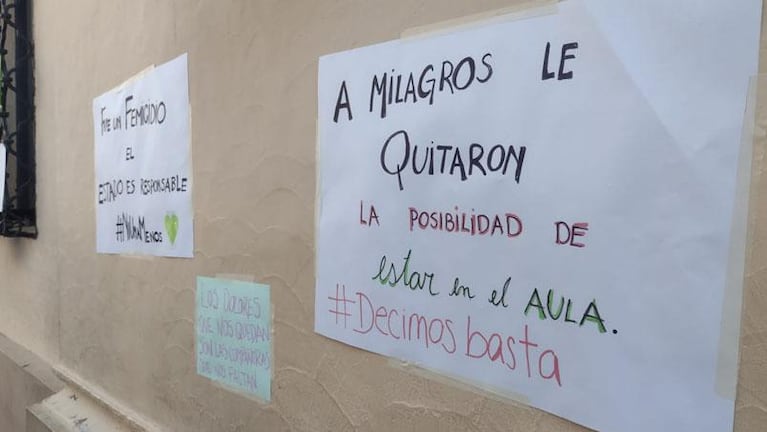 FUE UN FEMICIDIO
EL
ESTADO ES RESPONSABLE
#NiUnaMenos
LOS DOLORES
QUE NOS QUEDAN
SON LAS COMPAÑERAS
QUE NOS FALTAN
A MILAGROS LE
QUITARON
LA POSIBILIDAD DE
estar en el AULA.
#Decimos basta